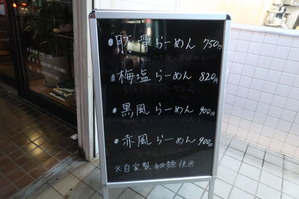 ・豚骨らーめん 750円
・梅塩らーめん 820円
・黒風らーめん 900円
・赤風らーめん 900円
※自家製細麺使用